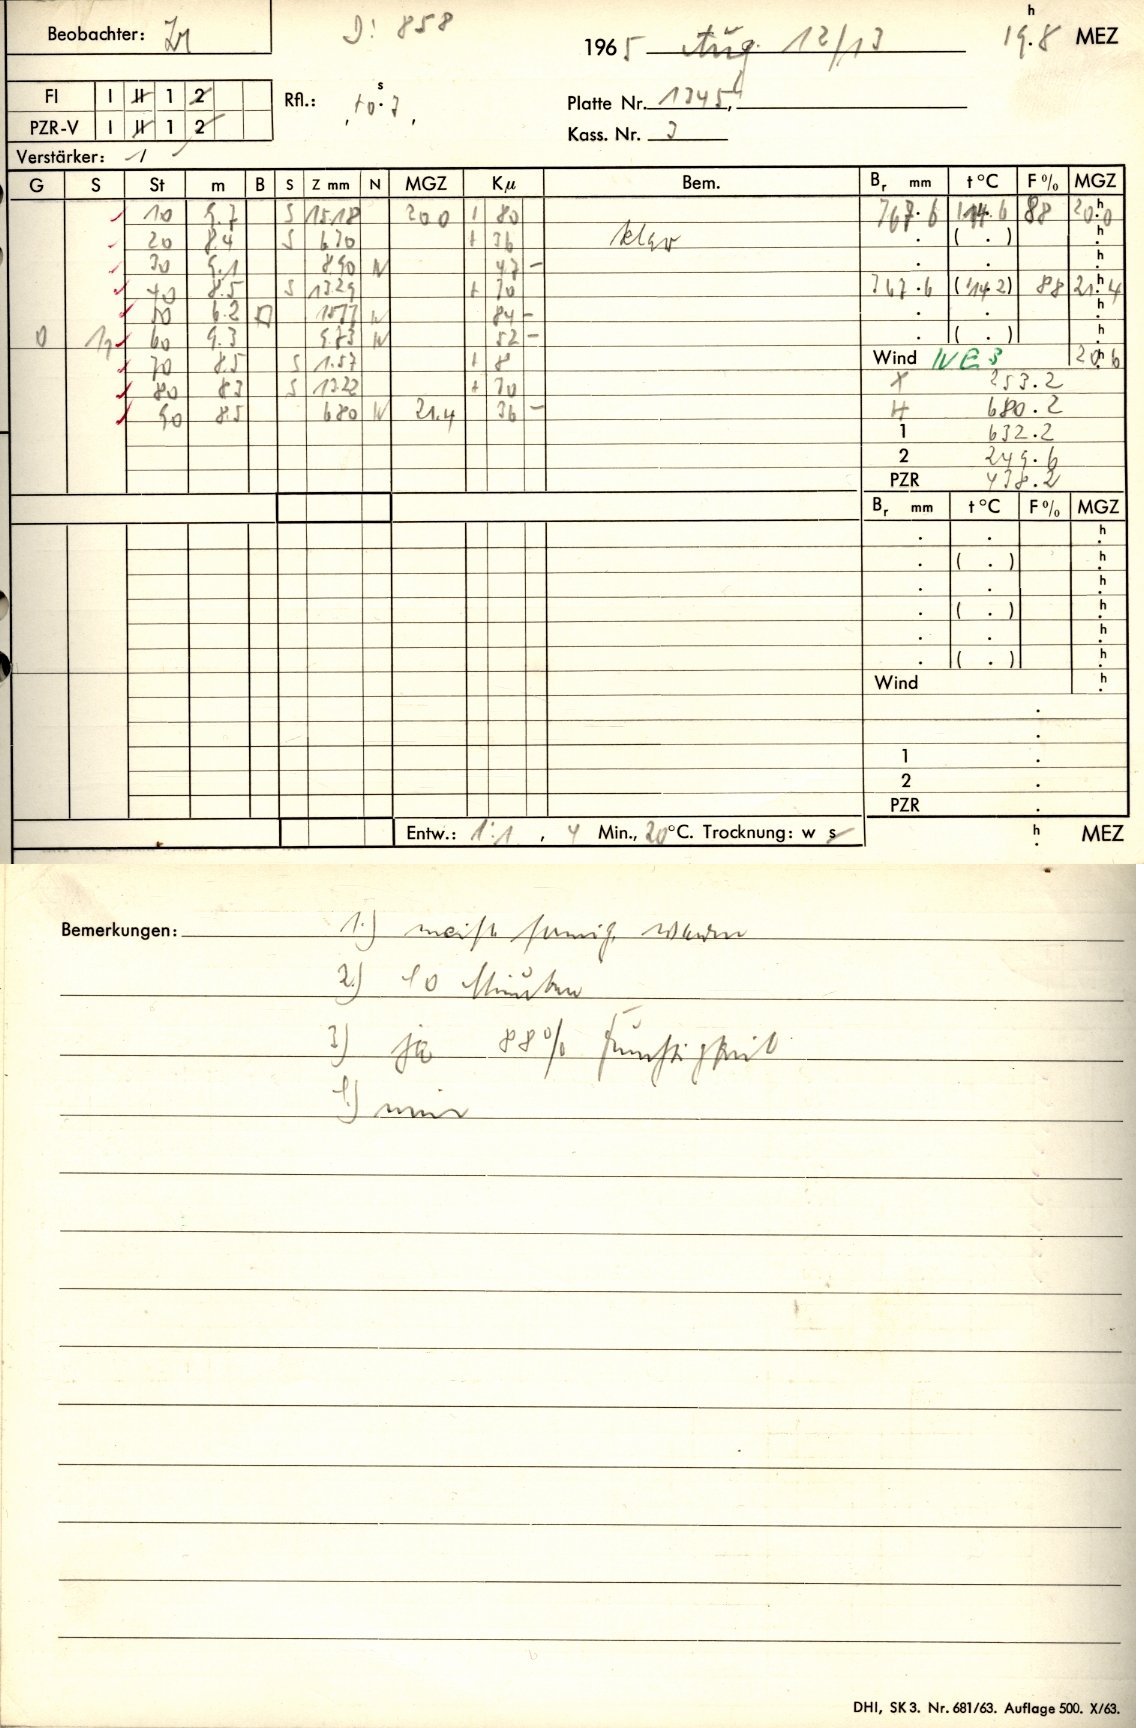 Beobachter:
D: 858
1965 Aug. 12/13
19.8 h MEZ
FI I II 1 2
PZR-V I II 1 2
Rfl.: +0.s3
Platte Nr. 1345,
Kass. Nr. 3
Verstärker: 1
G S St m B S Z mm N MGZ Kμ Bem. Br mm t °C F % MGZ
10 9.7 S 1518 200 + 80 767.6 14.6 88 20.h0
20 8.4 S 670 + 36 klar . ( . ) h
30 9.1 890 N 47 - . . h
40 8.5 S 1329 + 70 767.6 (14.2) 88 21.h4
50 6.2 1577 N 84 - . . h
0 60 9.3 9.73 N 52 - . ( . ) h
70 8.5 S 1.57 + 8 Wind NE 3 20.h6
80 8.3 S 1322 + 70 253.2
90 8.5 680 N 21.4 36 - H 680.2
1 632.2
2 249.6
PZR 438.2
Br mm t °C F % MGZ
. . h
. ( . ) h
. . h
. ( . ) h
. . h
. ( . ) h
Wind h
.
.
1 .
2 .
PZR .
Entw.: 1:1, 4 Min., 20 °C. Trocknung: w s
h MEZ
Bemerkungen: 1.) meist
2.) 10 Minuten
3) ja 88% Feuchtigkeit
DHI, SK 3. Nr. 681/63. Auflage 500. X/63.